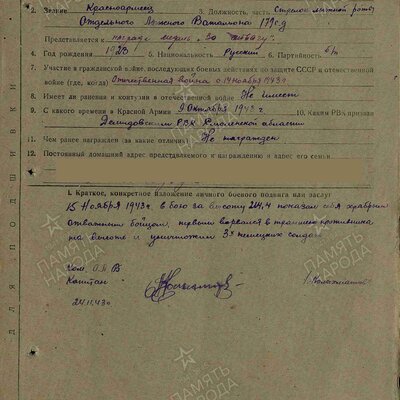 2. Звание Красноармеец 3. Должность, часть Стрелок лыжной роты
Отдельного Лыжного Батальона 179сд
Представляется к награде медаль "За отвагу"
4. Год рождения 1923 5. Национальность Русский 6. Партийность б/п
7. Участие в гражданской войне, последующих боевых действиях по защите СССР и отечественной
войне (где, когда) Отечественная война с 14 ноября 1943г
8. Имеет ли ранения и контузии в отечественной войне Не имеет
9. С какого времени в Красной Армии 9 Октября 1943 г 10. Каким РВК призван
Демидовским РВК Смоленской области
11. Чем ранее награжден (за какие отличия) Не награжден
12. Постоянный домашний адрес представляемого к награждению и адрес его семьи
I. Краткое, конкретное изложение личного боевого подвига или заслуг
15 Ноября 1943г. в бою за высоту 214,4 показал себя храбрым
отважным бойцом, первым ворвался в траншеи противника
на высоте и уничтожил 3х немецких солдат
Ком. О.Л.Б
Капитан
24.11.43г
ДЛЯ ПОДШИВКИ
ПАМЯТЬ НАРОДА
ПАМЯТЬ НАРОДА
ПАМЯТЬ НАРОДА
ПАМЯТЬ НАРОДА